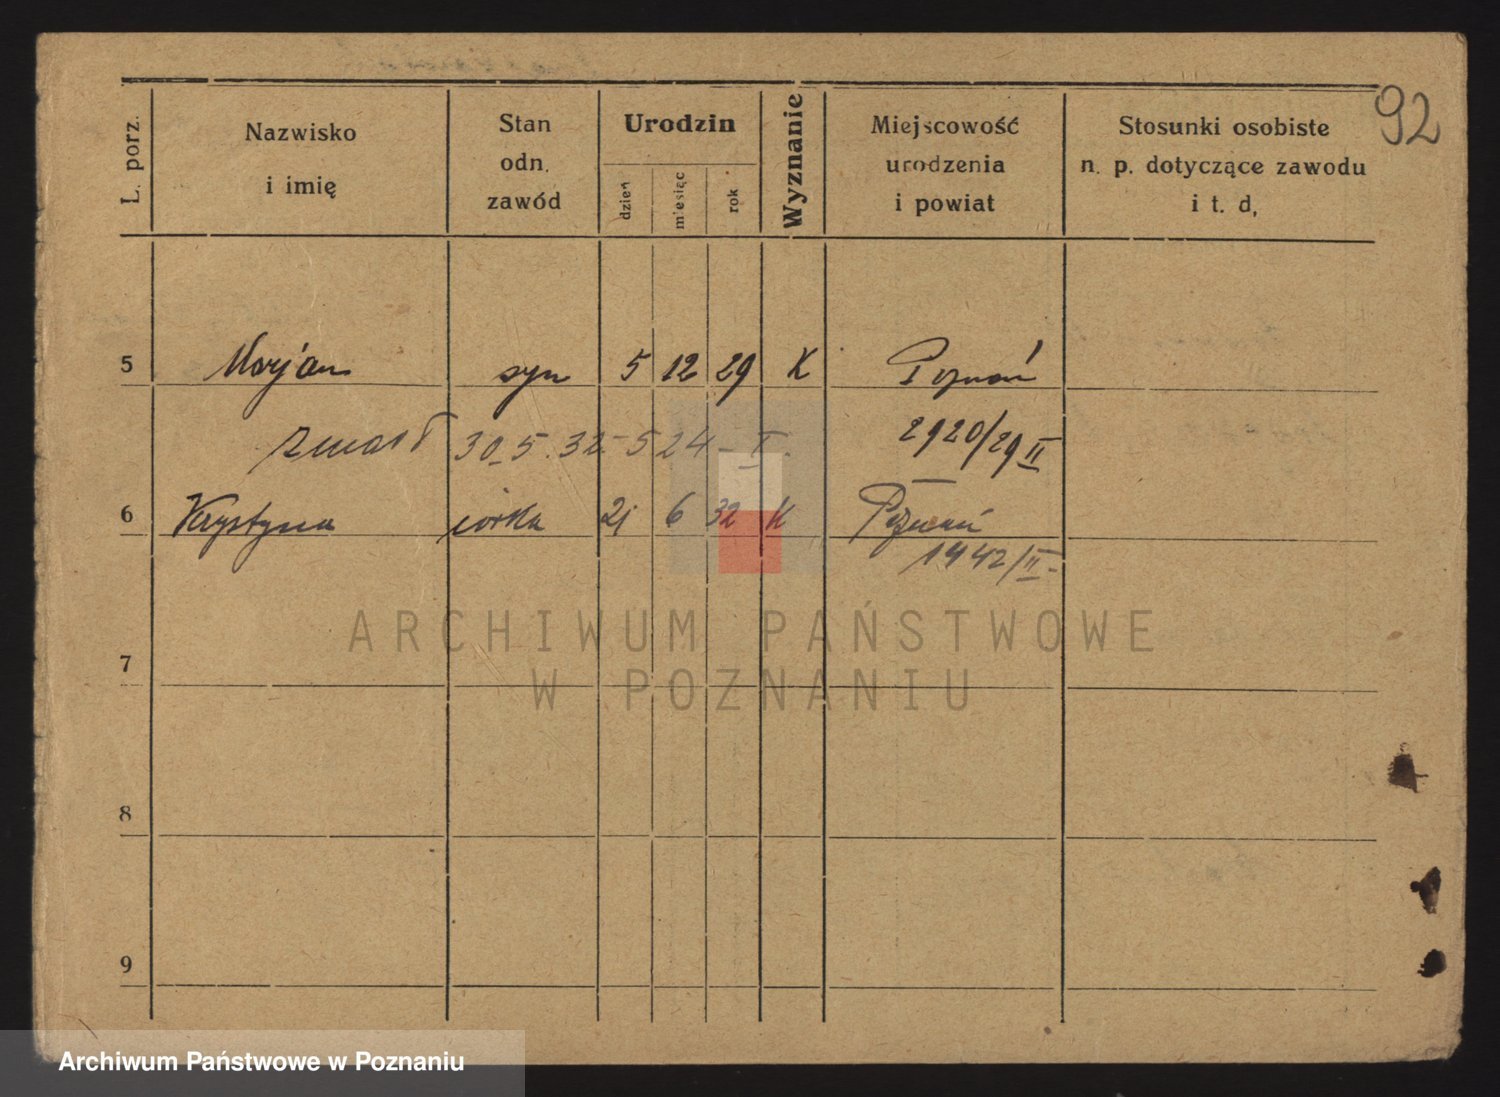 92
L. porz.
Nazwisko i imię
Stan odn. zawód
Urodzin
dzień
miesiąc
rok
Wyznanie
Miejscowość urodzenia i powiat
Stosunki osobiste n. p. dotyczące zawodu i t. d,
5 Marjan syn 5 12 29 K Poznań
zmarł 30.5.32 - 524 - I. 2920/29 II
6 Krystyna córka 21 6 32 K Poznań
1442/II-
7
8
9
ARCHIWUM PAŃSTWOWE
W POZNANIU
Archiwum Państwowe w Poznaniu